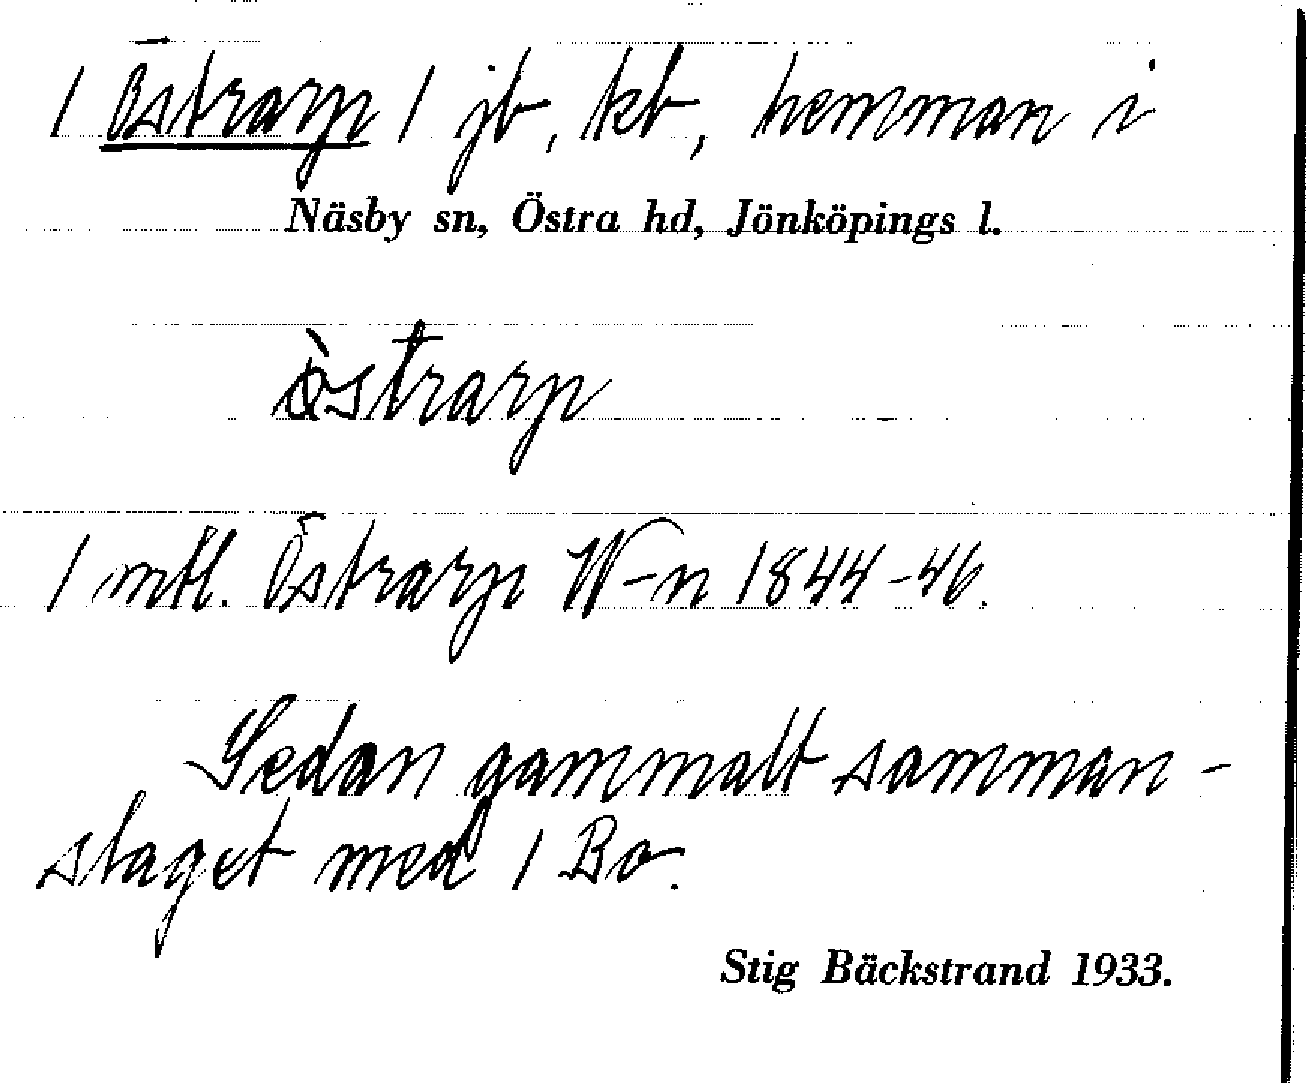 1 Östrarp 1 jb, kb, hemman i
Näsby sn, Östra hd, Jönköpings l.
òstrarp
1 mtl. Östrarp W-n 1844-46.
Sedan gammalt samman-
slaget med 1 Bo.
Stig Bäckstrand 1933.